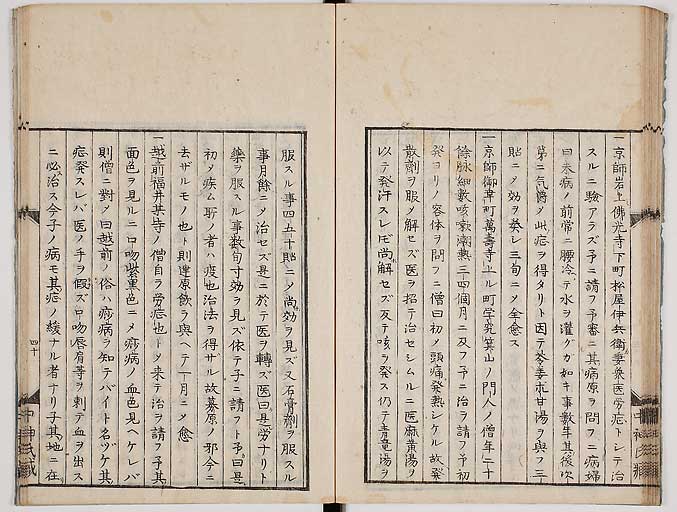 一京師岩上佛光寺下町松屋伊兵衛妻衆医労症トシテ治
スルニ驗アラズ予ニ請フ予審ニ其病原ヲ問フニ病婦
曰未病ノ前常ニ腰冷テ水ヲ灌グガ如キ事數年其後次
第ニ气欝〆此症ヲ得タリト因テ苓姜朮甘湯ヲ與フ三
貼ニ〆効ヲ奏レ三旬ニ〆全愈ス
一京師御幸町萬壽寺上ル町学究箕山ノ門人ノ僧年二十
餘脉細數咳嗽潮熱三四個月ニ及フ予ニ治ヲ請フ予初
発ヨリノ容体ヲ問フニ僧曰初メ頭痛発熱シケル故発
散劑ヲ服〆解セズ医ヲ招テ治セシムルニ医麻黄湯ヲ
以テ発汗スレ𪜈尚解セズ反テ咳ヲ発ス仍テ青竜湯ヲ
服スル事四五十貼ニ〆尚効ヲ見ズ又石膏劑ヲ服スル
事月餘ニ〆治セズ是ニ於テ医ヲ轉ズ医曰是労ナリト
藥ヲ服スル事数旬寸効ヲ見ズ依テ子ニ請フト予曰是
初メ疾ム所ノ者ハ疫也治法ヲ得ザル故募原ノ邪今ニ
去ザルモノ也ト則達原飲ヲ與ヘテ一月ニ〆愈
一越前福井某寺ノ僧自ヲ労症也ト〆来テ治ヲ請フ予其
面色ヲ見ルニ口吻紫黒色ニ〆痧病ノ血色見ヘケレバ
則僧ニ對〆曰越前ノ俗ハ痧病ヲ知テバイト名ヅケ其
症発スレバ医ノ手ヲ假ズ口吻唇肩等ヲ刺テ血ヲ出ス
ニ必治ス今子ノ病モ其症ノ緩ナル者ナリ子其地ニ在
四十
中神氏藏